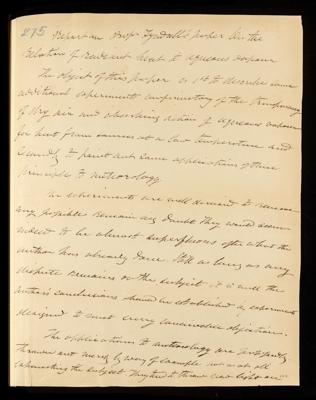 275
Report on Profr Tyndall's paper On the
Relation of Radiant heat to aqueous vapour
The object of this paper is 1st to describe some
additional experiments confirmatory of the transparency
of dry air and absorbing action of aqueous vapour
for heat from sources at a low temperature and
secondly to point out some applications of these
principles to meteorology.
The experiments are well devised to remove
any possible remaining doubt they would seem
indeed to be almost superfluous after what the
author has already done. Still as long as any
dispute remains on the subject it is well the
author's conclusions should be established by experiments
designed to meet every conceivable objection.
The applications to meteorology are
thrown out merely by way of example not as at all
exhausting the subject They tend to throw